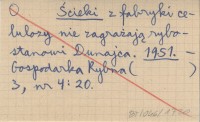 Ścieki z fabryki ce-
lulozy nie zagrażają rybo-
stanowi Dunajca. 1951. -
Gospodarka Rybna ( )
3, nr 4:20.